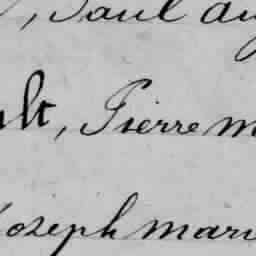 , Paul au
lt, Pierre m
Joseph mari